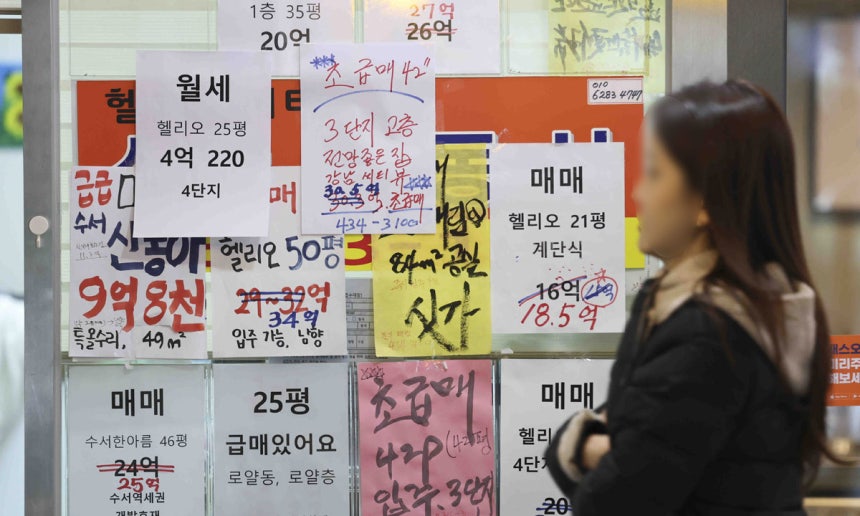 1층 35평
20억
27억
26억
010
6283 4747
헬
월세
헬리오 25평
4억 220
4단지
초급매 42"
3단지 고층
전망좋은 집
강남 시티뷰
30.5억
초급매
434-3100
급급
수서
신동아
9억 8천
특올수리, 49m²
매
헬리오 50평
29~32억
34억
입주 가능, 남향
84m² 공실
싯가
매매
헬리오 21평
계단식
16억
18.5억
매매
수서한아름 46평
24억
25억
수서역세권
개발호재
25평
급매있어요
로얄동, 로얄층
초급매
42P (42평
입주. 3단지
매매
헬
4단
20